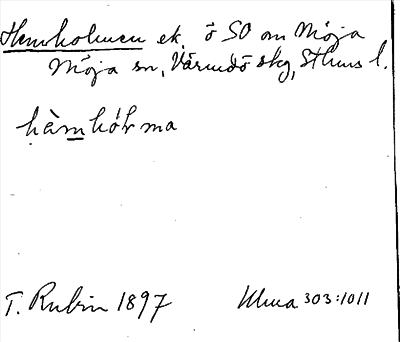 Hemholmen ek. ö SO om Möja
Möja sn, Värmdö skg, Sthms l.
hàmhó̀lma
T. Rubin 1897 Ulma 303:1011